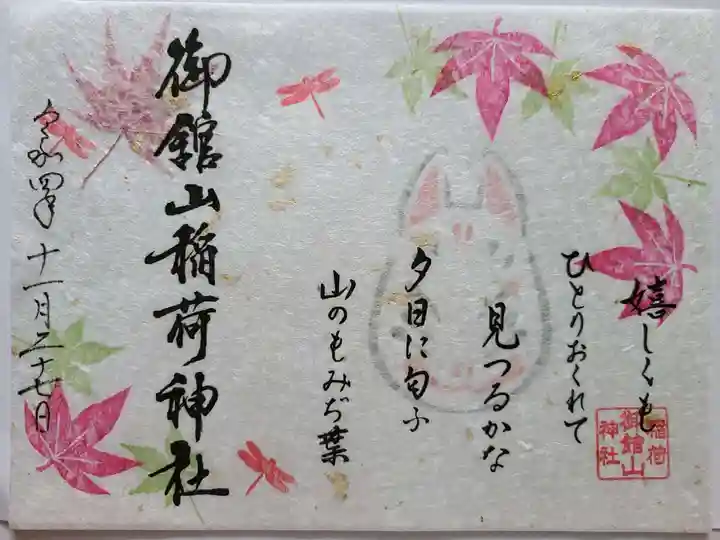 嬉しくも
ひとりおくれて
見つるかな
夕日に匂ふ
山のもみぢ葉
御館山
稲荷
神社
御館山稲荷神社
令和四年十一月二十七日